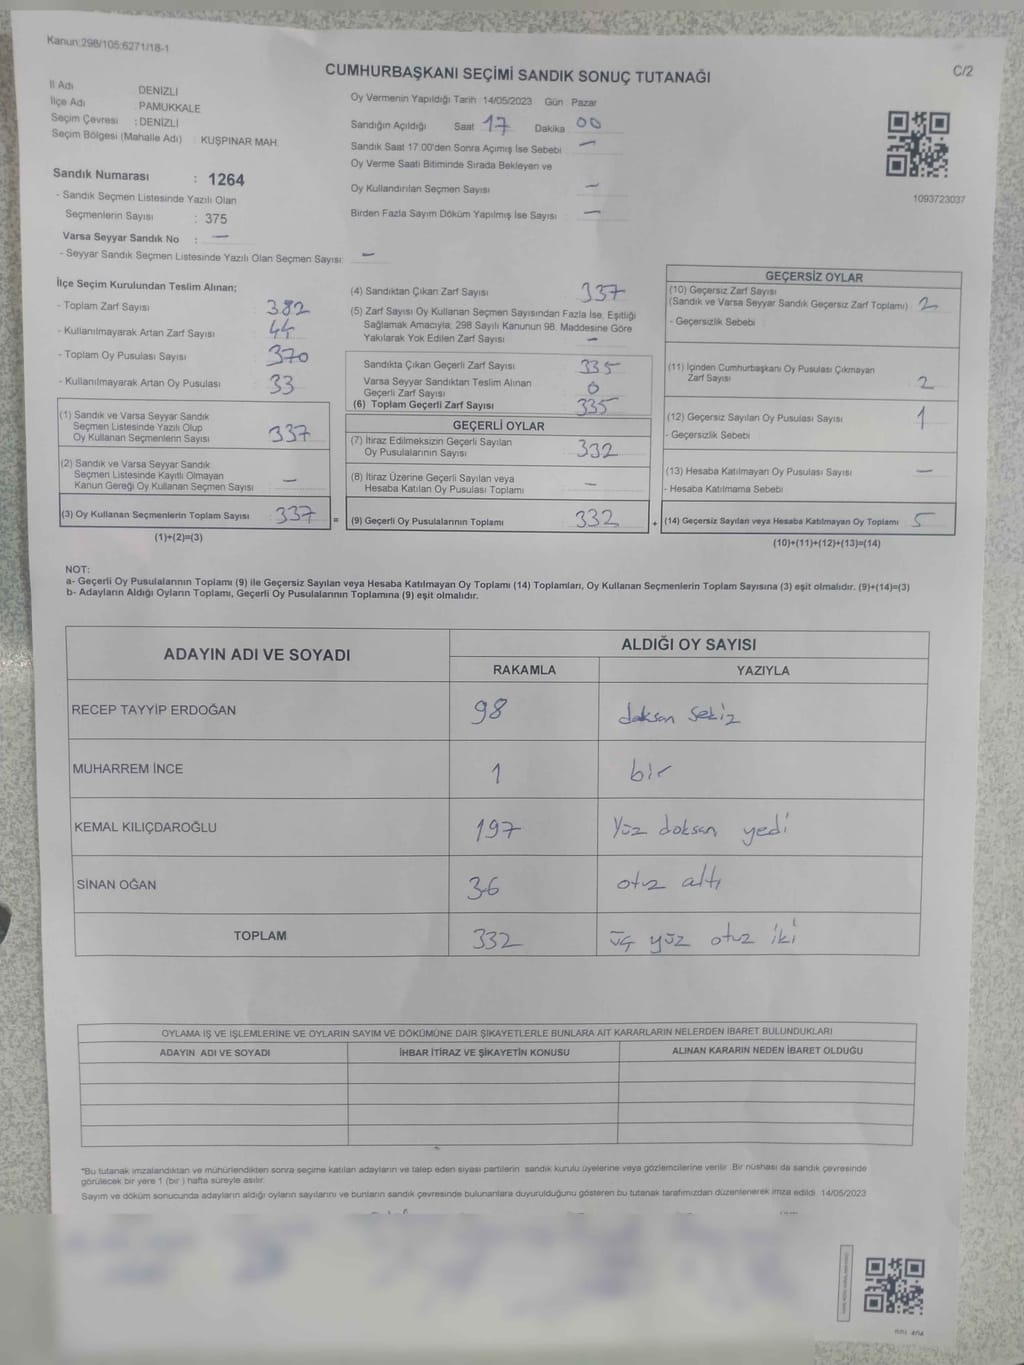 Kanun:298/105;6271/18-1
C/2
CUMHURBAŞKANI SEÇİMİ SANDIK SONUÇ TUTANAĞI
İl Adı DENİZLİ
İlçe Adı : PAMUKKALE
Seçim Çevresi : DENİZLİ
Seçim Bölgesi (Mahalle Adı) : KUŞPINAR MAH.
Sandık Numarası : 1264
- Sandık Seçmen Listesinde Yazılı Olan
Seçmenlerin Sayısı : 375
Varsa Seyyar Sandık No : —
- Seyyar Sandık Seçmen Listesinde Yazılı Olan Seçmen Sayısı: —
Oy Vermenin Yapıldığı Tarih 14/05/2023 Gün Pazar
Sandığın Açıldığı Saat 17 Dakika 00
Sandık Saat 17:00'den Sonra Açımış İse Sebebi —
Oy Verme Saati Bitiminde Sırada Bekleyen ve
Oy Kullandırılan Seçmen Sayısı —
Birden Fazla Sayım Döküm Yapılmış İse Sayısı —
1093723037
İlçe Seçim Kurulundan Teslim Alınan;
- Toplam Zarf Sayısı 382
- Kullanılmayarak Artan Zarf Sayısı 44
- Toplam Oy Pusulası Sayısı 370
- Kullanılmayarak Artan Oy Pusulası 33
(1) Sandık ve Varsa Seyyar Sandık
Seçmen Listesinde Yazılı Olup
Oy Kullanan Seçmenlerin Sayısı 337
(2) Sandık ve Varsa Seyyar Sandık
Seçmen Listesinde Kayıtlı Olmayan
Kanun Gereği Oy Kullanan Seçmen Sayısı —
(3) Oy Kullanan Seçmenlerin Toplam Sayısı 337 =
(1)+(2)=(3)
(4) Sandıktan Çıkan Zarf Sayısı 337
(5) Zarf Sayısı Oy Kullanan Seçmen Sayısından Fazla İse, Eşitliği
Sağlamak Amacıyla; 298 Sayılı Kanunun 98. Maddesine Göre
Yakılarak Yok Edilen Zarf Sayısı —
Sandıkta Çıkan Geçerli Zarf Sayısı 335
Varsa Seyyar Sandıktan Teslim Alınan
Geçerli Zarf Sayısı 0
(6) Toplam Geçerli Zarf Sayısı 335
GEÇERLİ OYLAR
(7) İtiraz Edilmeksizin Geçerli Sayılan
Oy Pusulalarının Sayısı 332
(8) İtiraz Üzerine Geçerli Sayılan veya
Hesaba Katılan Oy Pusulası Toplamı —
(9) Geçerli Oy Pusulalarının Toplamı 332 +
GEÇERSİZ OYLAR
(10) Geçersiz Zarf Sayısı
(Sandık ve Varsa Seyyar Sandık Geçersiz Zarf Toplamı) 2
- Geçersizlik Sebebi
(11) İçinden Cumhurbaşkanı Oy Pusulası Çıkmayan
Zarf Sayısı 2
(12) Geçersiz Sayılan Oy Pusulası Sayısı 1
- Geçersizlik Sebebi
(13) Hesaba Katılmayan Oy Pusulası Sayısı —
- Hesaba Katılmama Sebebi
(14) Geçersiz Sayılan veya Hesaba Katılmayan Oy Toplamı 5
(10)+(11)+(12)+(13)=(14)
NOT:
a- Geçerli Oy Pusulalarının Toplamı (9) ile Geçersiz Sayılan veya Hesaba Katılmayan Oy Toplamı (14) Toplamları, Oy Kullanan Seçmenlerin Toplam Sayısına (3) eşit olmalıdır. (9)+(14)=(3)
b- Adayların Aldığı Oyların Toplamı, Geçerli Oy Pusulalarının Toplamına (9) eşit olmalıdır.
ADAYIN ADI VE SOYADI
ALDIĞI OY SAYISI
RAKAMLA YAZIYLA
RECEP TAYYİP ERDOĞAN 98 doksan sekiz
MUHARREM İNCE 1 bir
KEMAL KILIÇDAROĞLU 197 Yüz doksan yedi
SİNAN OĞAN 36 otuz altı
TOPLAM 332 üç yüz otuz iki
OYLAMA İŞ VE İŞLEMLERİNE VE OYLARIN SAYIM VE DÖKÜMÜNE DAİR ŞİKAYETLERLE BUNLARA AİT KARARLARIN NELERDEN İBARET BULUNDUKLARI
ADAYIN ADI VE SOYADI İHBAR İTİRAZ VE ŞİKAYETİN KONUSU ALINAN KARARIN NEDEN İBARET OLDUĞU
*Bu tutanak imzalandıktan ve mühürlendikten sonra seçime katılan adayların ve talep eden siyasi partilerin sandık kurulu üyelerine veya gözlemcilerine verilir. Bir nüshası da sandık çevresinde
görülecek bir yere 1 (bir) hafta süreyle asılır.
Sayım ve döküm sonucunda adayların aldığı oyların sayılarını ve bunların sandık çevresinde bulunanlara duyurulduğunu gösteren bu tutanak tarafımızdan düzenlenerek imza edildi. 14/05/2023